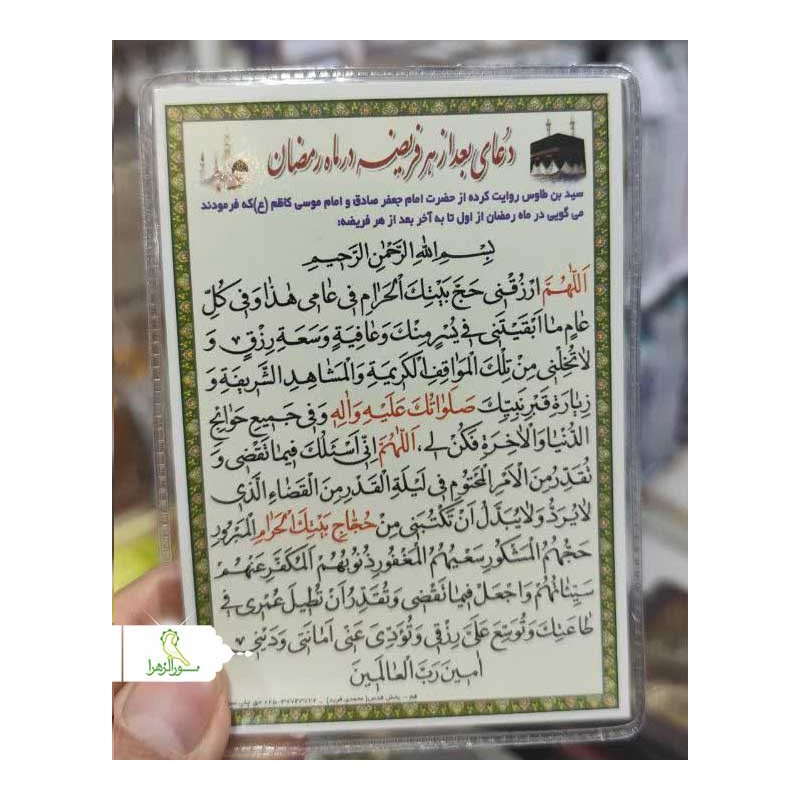 دعای بعد از هر فریضه در ماه رمضان
سید بن طاوس روایت کرده از حضرت امام جعفر صادق و امام موسی کاظم (ع)که فرمودند
می گویی در ماه رمضان از اول تا به آخر بعد از هر فریضه:
بِسْمِ اللهِ الرَّحْمٰنِ الرَّحیمِ
اَللّٰهُمَّ ارْزُقْنی حَجَّ بَیْتِكَ الْحَرٰامِ فی عٰامی هٰذٰا وَفی کُلِّ
عٰامٍ مٰا اَبْقَیْتَنی فی یُسْرٍ مِنْكَ وَعٰافِیَةٍ وَسَعَةِ رِزْقٍ وَ
لٰا تُخْلِنی مِنْ تِلْكَ الْمَوٰاقِفِ الْکَریمَةِ وَالْمَشٰاهِدِ الشَّریفَةِ وَ
زِیٰارَةِ قَبْرِ نَبِیِّكَ صَلَوٰاتُكَ عَلَیْهِ وَاٰلِهِ وَفی جَمیعِ حَوٰائِجِ
الدُّنْیٰا وَالْاٰخِرَةِ فَکُنْ لی، اَللّٰهُمَّ اِنّی اَسْئَلُكَ فیمٰا تَقْضی وَ
تُقَدِّرُ مِنَ الْاَمْرِ الْمَحْتُومِ فی لَیْلَةِ الْقَدْرِ مِنَ الْقَضٰاءِ الَّذی
لٰا یُرَدُّ وَلٰا یُبَدَّلُ اَنْ تَکْتُبَنی مِنْ حُجّٰاجِ بَیْتِكَ الْحَرٰامِ الْمَبْرُورِ
حَجُّهُمُ الْمَشْکُورِ سَعْیُهُمُ الْمَغْفُورِ ذُنُوبُهُمْ الْمُکَفَّرِ عَنْهُمْ
سَیِّئٰاتُهُمْ وَاجْعَلْ فیمٰا تَقْضی وَتُقَدِّرُ اَنْ تُطیلَ عُمْری فی
طٰاعَتِكَ وَتُوَسِّعَ عَلَیَّ رِزْقی وَتُؤَدِّیَ عَنّی اَمٰانَتی وَدَیْنی
اٰمینَ رَبَّ الْعٰالَمینَ
قم - پخش قدس( محمدی فرید)
سورالزهرا